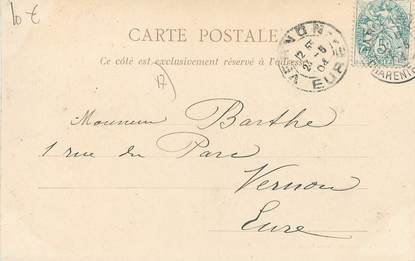 10 €
CARTE POSTALE
Ce côté est exclusivement réservé à l'adresse
VERNON
12 E
23 - 5
04
EURE
CHARENT
17
Monsieur Barthe
1 rue du Parc
Vernon
Eure